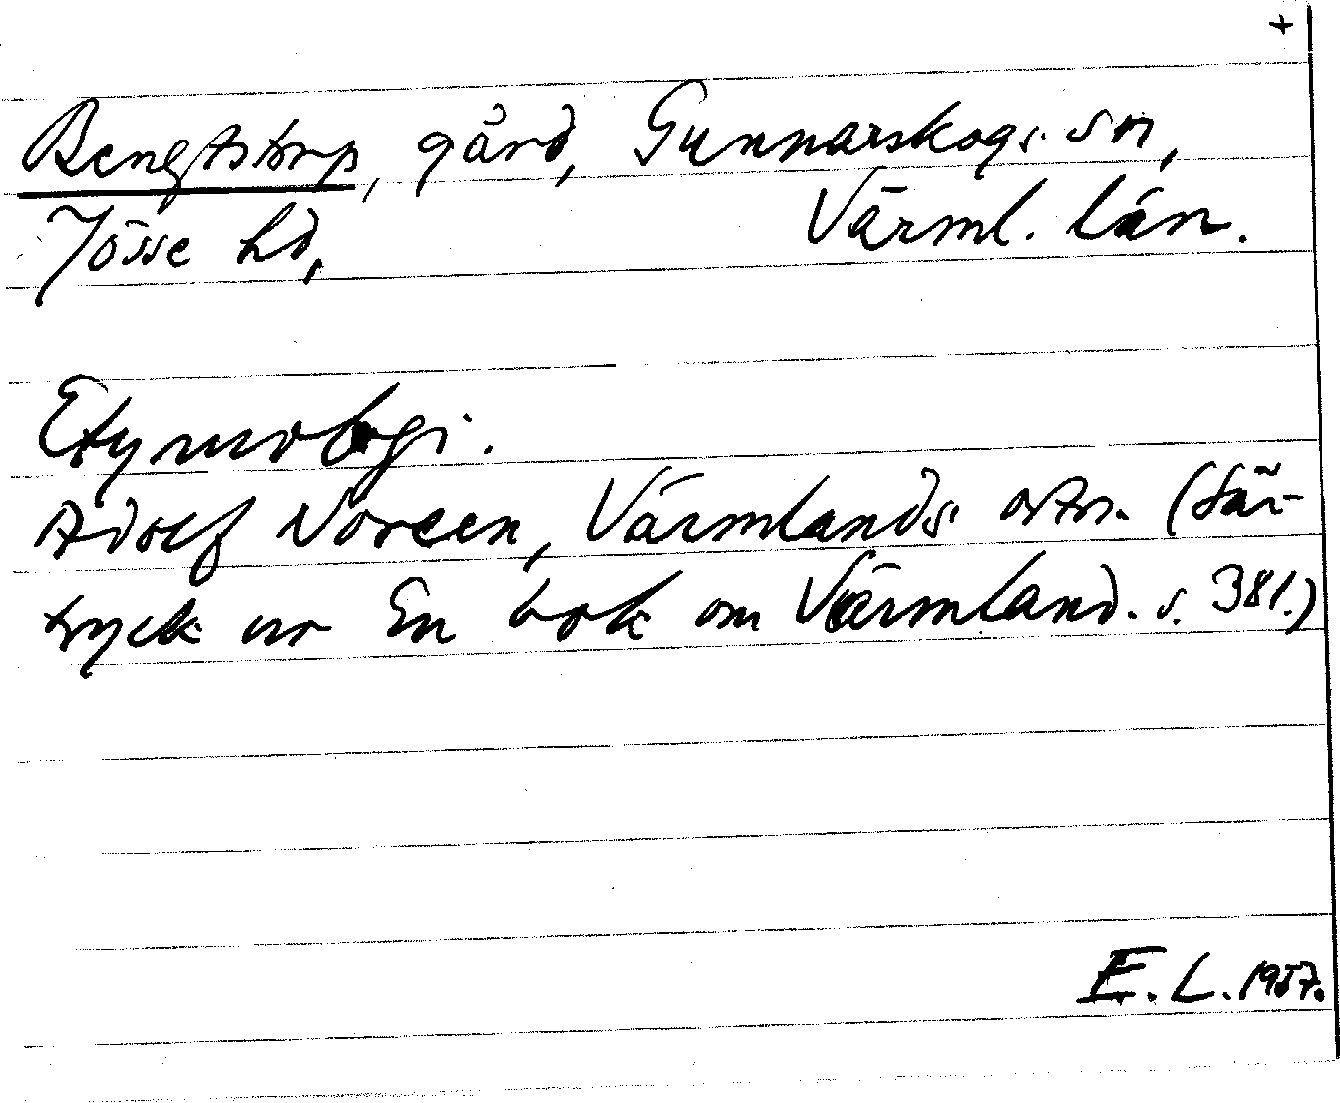 +
Bengtstorp, gård, Gunnarskogs sn,
Jösse hd, Värml. län.
Etymologi.
Adolf Noreen, Värmlands ortn. (Sär-
tryck ur En bok om Värmland. s. 381.)
E. L. 1957.